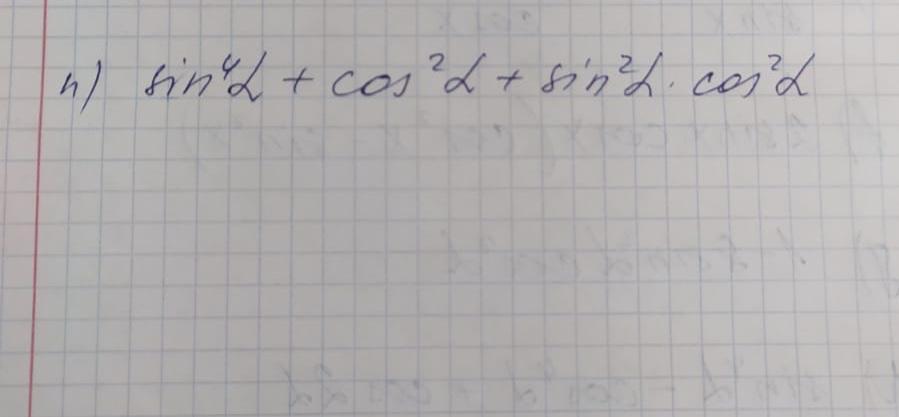 n) sin⁴α + cos²α + sin²α · cos²α